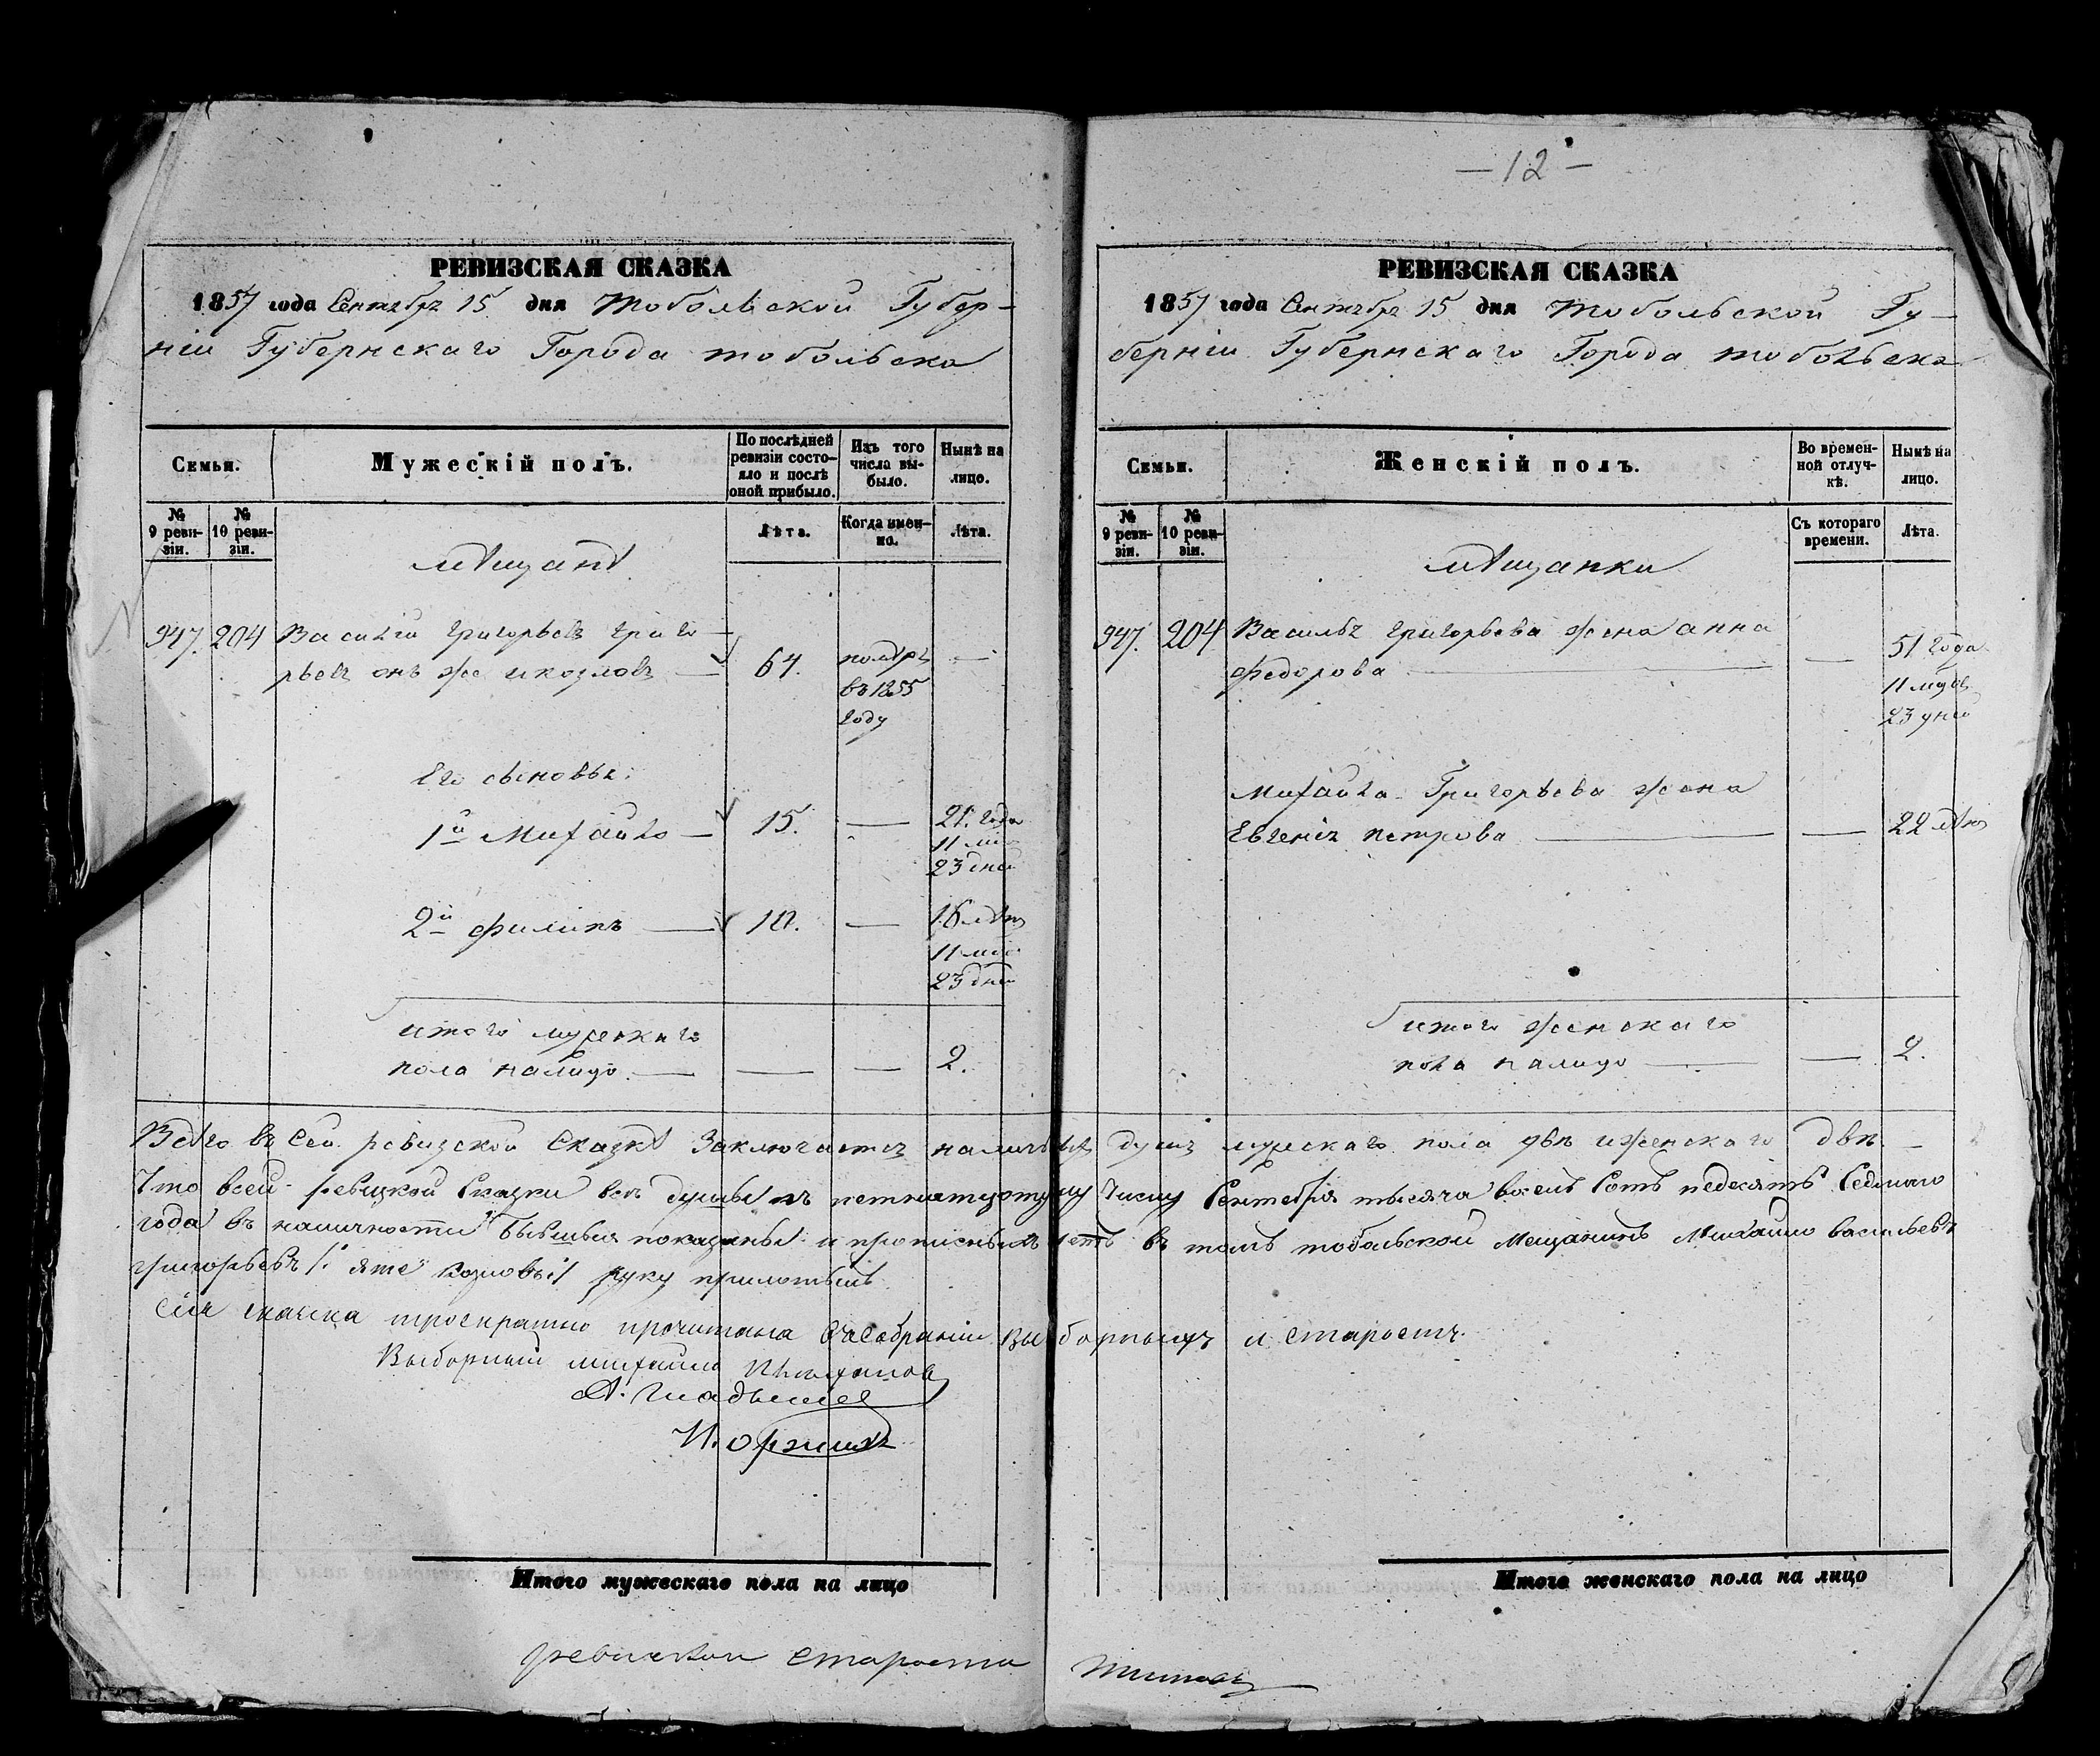 — 12 —
РЕВИЗСКАЯ СКАЗКА
1857 года Сентября 15 дня Тобольской Губер-
ніи Губернскаго Города Тобольска
Семьи.
Мужескій полъ.
По послѣдней ревизіи состояло и послѣ оной прибыло.
Изъ того числа выбыло.
Нынѣ на лицо.
№ 9 ревизіи.
№ 10 ревизіи.
Лѣта.
Когда именно.
Лѣта.
мѣщанѣ
947. 204 Василій Григорьевъ Григо-
рьевъ онъ же и козловъ — 64. помѣръ —
въ 1855
году
Его сыновья:
1й Михайло — 15. — 21. года
11 мѣс
23 дней
2й филипъ — 10. — 16 лѣтъ
11 мѣс
23 дней
итого мужскаго
пола налицо. — — — 2.
РЕВИЗСКАЯ СКАЗКА
1857 года Сентября 15 дня Тобольской Гу-
берніи Губернскаго Города Тобольска
Семьи.
Женскій полъ.
Во временной отлучкѣ.
Нынѣ на лицо.
№ 9 ревизіи.
№ 10 ревизіи.
Съ котораго времени.
Лѣта.
мѣщанки
947. 204 Василья Григорьева жена анна
федорова — — 51 года
11 мѣсяц
23 дней
Михайла Григорьева жена
Евгенія петрова — — 22 лѣтъ
итого женскаго
пола налицо — — 2.
Всего въ сей ревизской Сказкѣ Заключается наличныхъ душъ мужскаго пола двѣ и женскаго двѣ. —
Что в сей ревизкой Сказки всѣ душы къ петнатцотому числу Сентебря тысяча восемь сотъ педесятъ Седмаго
года въ наличности бывшыя показаны и прописныхъ нетъ въ томъ тобольской мещанинъ Михайло васильевъ
григорьевъ /: онъ же козловъ :/ руку приложилъ
Сія сказка троекратно прочитана въ Собраніи выборныхъ и старостъ.
Выборный михайло
И.
ревизкой староста Титовъ
Итого мужескаго пола на лицо
Итого женскаго пола на лицо